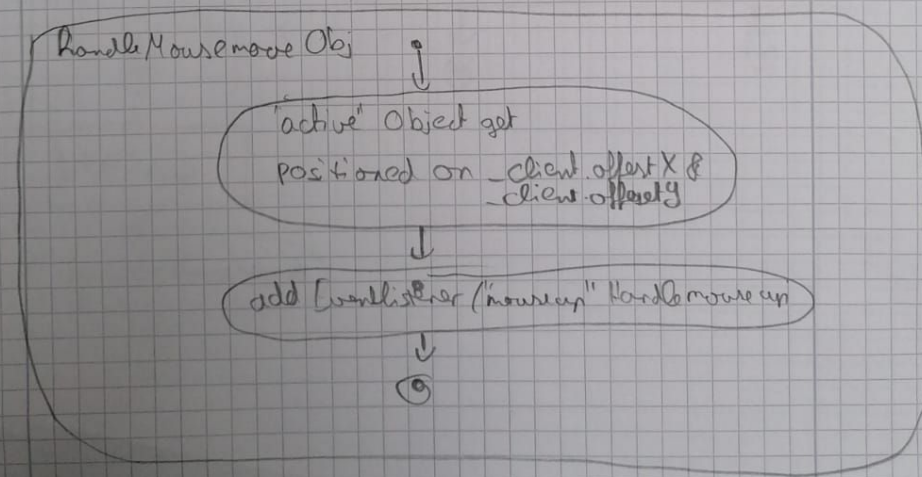 handleMousemove Obj
"active" Object get
positioned on _client.offsetX &
_client.offsetY
add Eventlistener ("mouseup" Handlemouseup